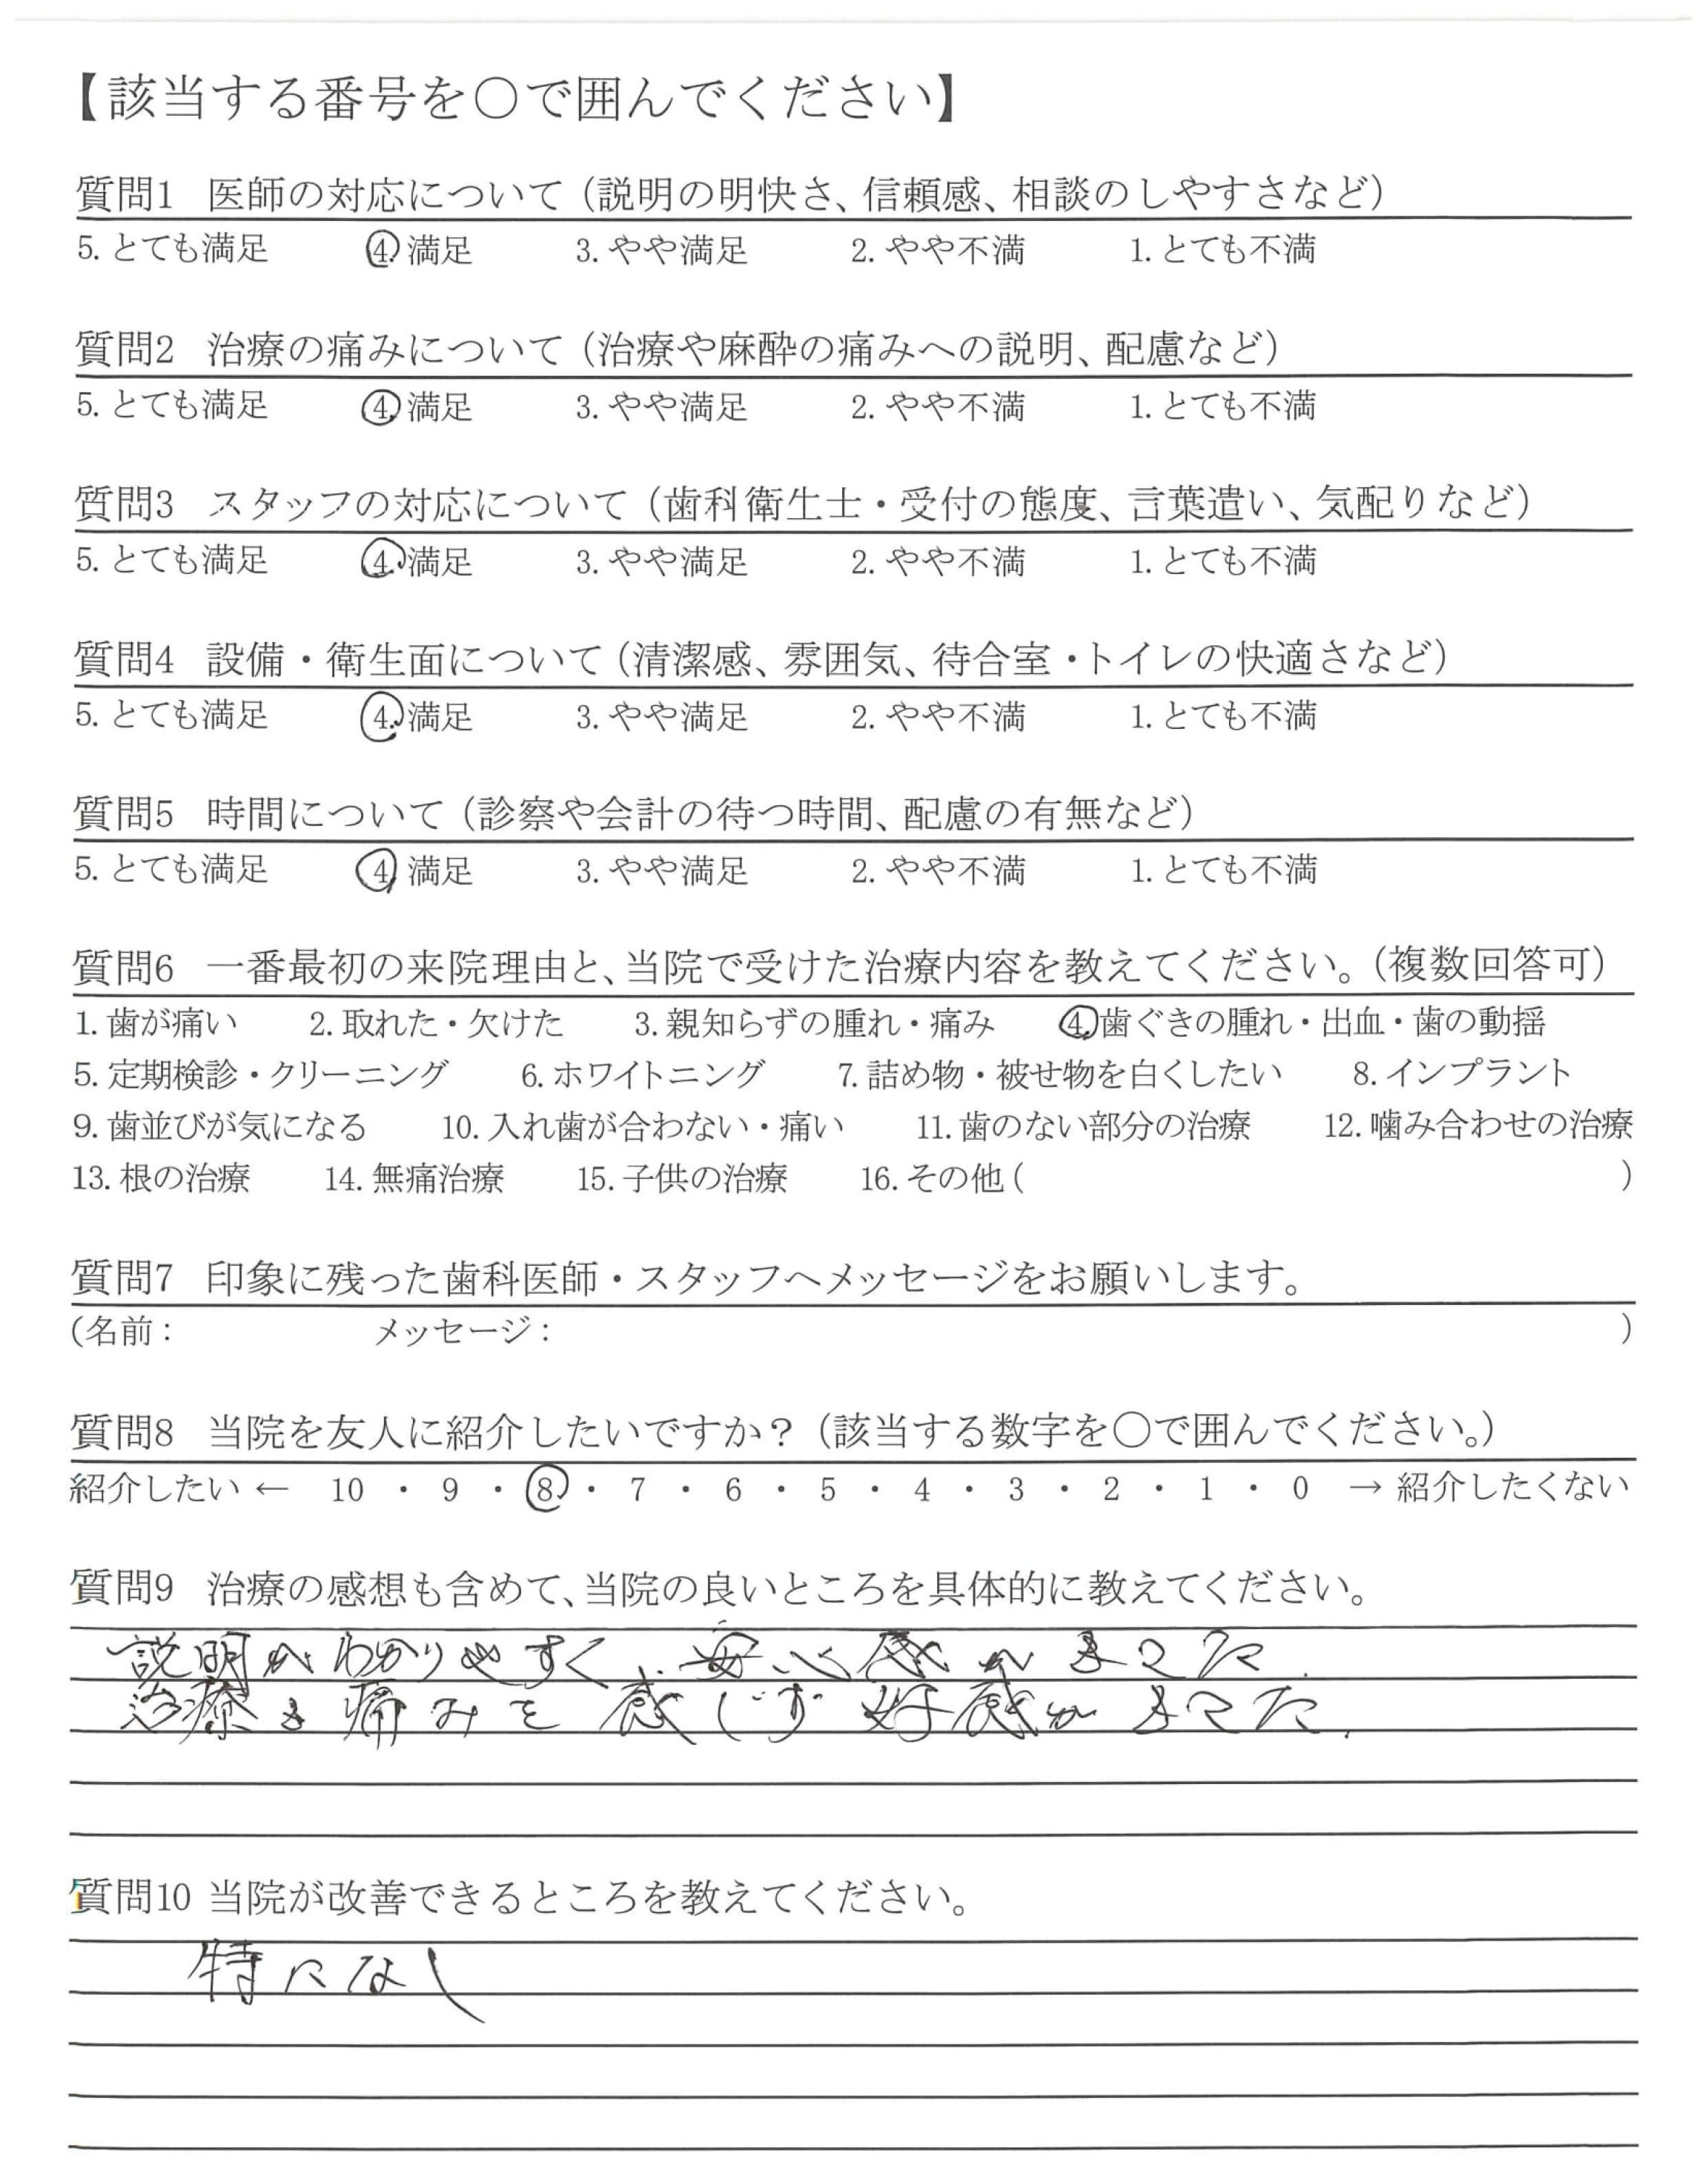 【該当する番号を〇で囲んでください】
質問1 医師の対応について（説明の明快さ、信頼感、相談のしやすさなど）
5. とても満足 4. 満足 3. やや満足 2. やや不満 1. とても不満
質問2 治療の痛みについて（治療や麻酔の痛みへの説明、配慮など）
5. とても満足 4. 満足 3. やや満足 2. やや不満 1. とても不満
質問3 スタッフの対応について（歯科衛生士・受付の態度、言葉遣い、気配りなど）
5. とても満足 4. 満足 3. やや満足 2. やや不満 1. とても不満
質問4 設備・衛生面について（清潔感、雰囲気、待合室・トイレの快適さなど）
5. とても満足 4. 満足 3. やや満足 2. やや不満 1. とても不満
質問5 時間について（診察や会計の待つ時間、配慮の有無など）
5. とても満足 4. 満足 3. やや満足 2. やや不満 1. とても不満
質問6 一番最初の来院理由と、当院で受けた治療内容を教えてください。（複数回答可）
1. 歯が痛い 2. 取れた・欠けた 3. 親知らずの腫れ・痛み 4. 歯ぐきの腫れ・出血・歯の動揺
5. 定期検診・クリーニング 6. ホワイトニング 7. 詰め物・被せ物を白くしたい 8. インプラント
9. 歯並びが気になる 10. 入れ歯が合わない・痛い 11. 歯のない部分の治療 12. 噛み合わせの治療
13. 根の治療 14. 無痛治療 15. 子供の治療 16. その他（ ）
質問7 印象に残った歯科医師・スタッフへメッセージをお願いします。
（名前： メッセージ： ）
質問8 当院を友人に紹介したいですか？（該当する数字を〇で囲んでください。）
紹介したい ← 10 ・ 9 ・ 8 ・ 7 ・ 6 ・ 5 ・ 4 ・ 3 ・ 2 ・ 1 ・ 0 → 紹介したくない
質問9 治療の感想も含めて、当院の良いところを具体的に教えてください。
説明がわかりやすく、安心感がもてた。
治療も痛みを感じず好感がもてた。
質問10 当院が改善できるところを教えてください。
特になし